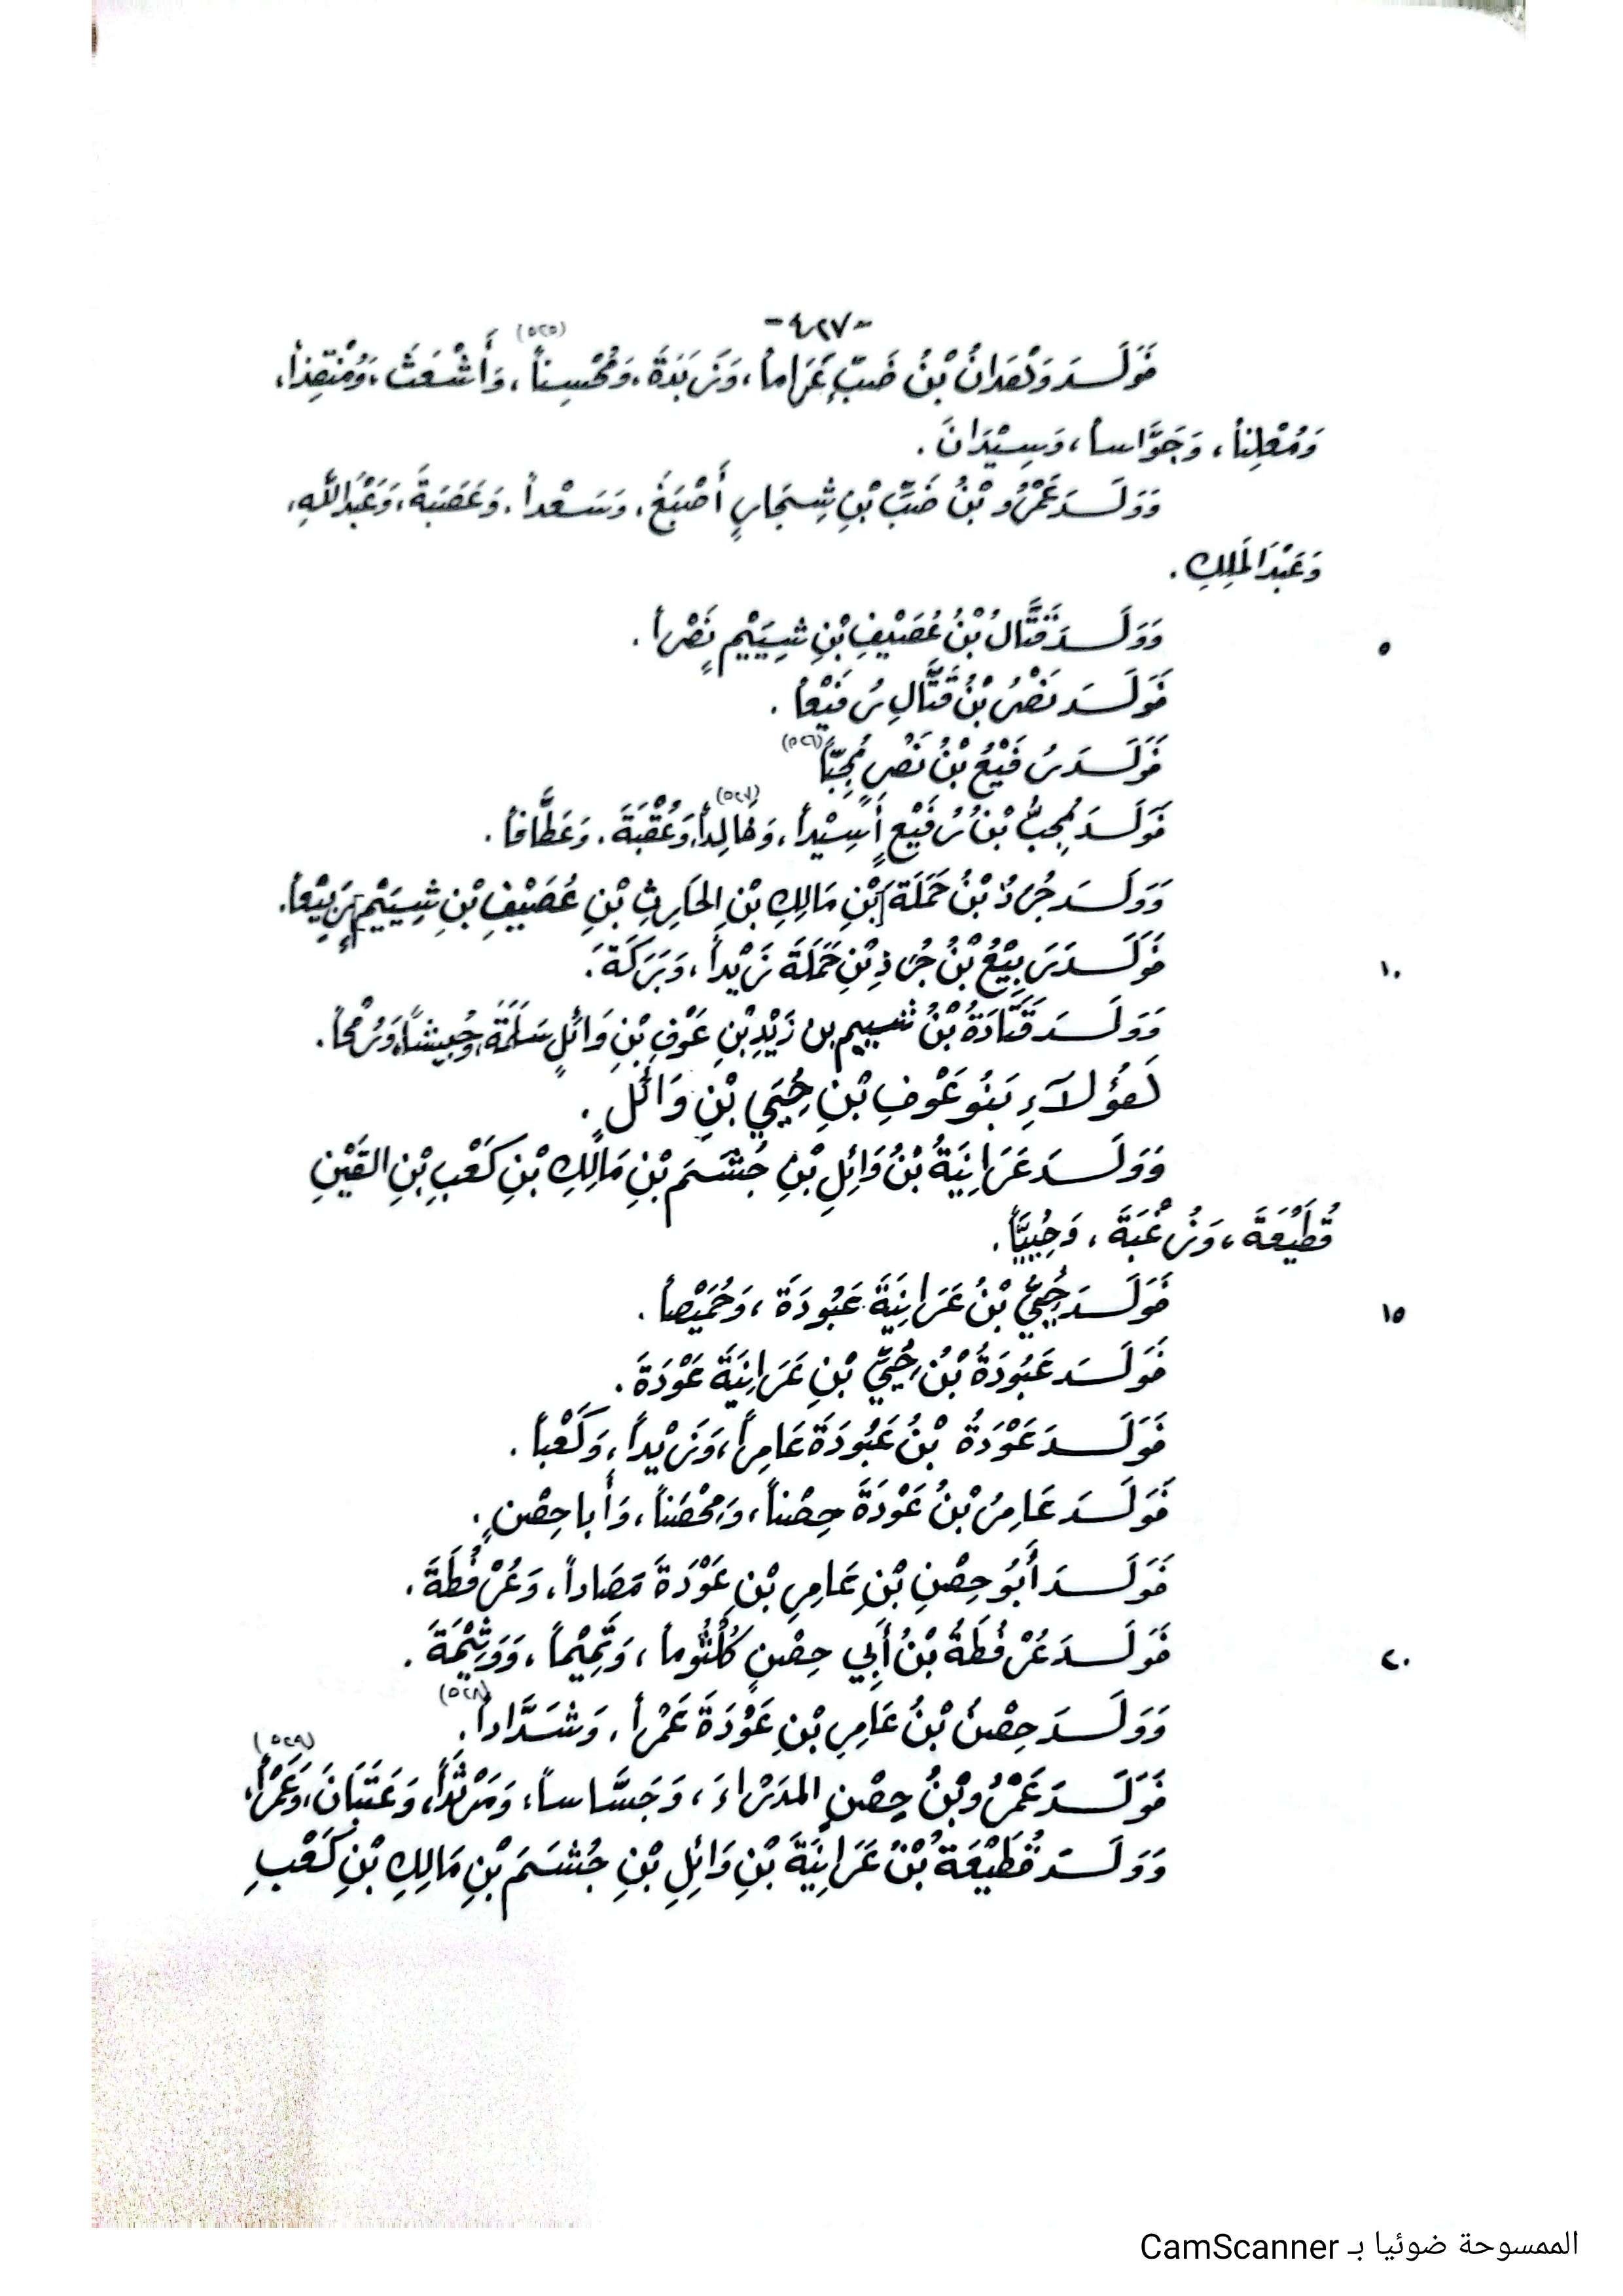 -٤٢٧-
فَوَلَـدَ وَلْعَدانُ بْنُ ضَبٍّ عَرَاماً، وَزَبَدَةَ، وَمُحْسِناً (٥٢٥)، وَأَشْعَثَ، وَمُنْقِذاً،
وَمُعْلِناً، وَجَوَّاساً، وَسِيْدَانَ.
وَوَلَـدَ عَمْرُو بْنُ ضَبِّ بْنِ شِجَارٍ أَصْبَغَ، وَسَعْداً، وَعَصَبَةَ، وَعَبْدَاللهِ،
وَعَبْدَالمَلِكِ.
٥ وَوَلَـدَ قَتَّالُ بْنُ عُصَيْفِ بْنِ شِيَيْمٍ نَصْراً.
فَوَلَـدَ نَصْرُ بْنُ قَتَّالٍ رُفَيْعاً.
فَوَلَـدَ رُفَيْعُ بْنُ نَصْرٍ مُحِبّاً (٥٢٦)
فَوَلَـدَ مُحِبُّ بْنُ رُفَيْعٍ أَسِيْداً، وَخَالِداً (٥٢٧)، وَعُقْبَةَ، وَعَطَّافاً.
وَوَلَـدَ جُرَذُ بْنُ حَمَلَةَ [بْنِ مَالِكِ بْنِ الحَارِثِ بْنِ عُصَيْفِ بْنِ شِيَيْمٍ] رَبِيْعاً.
١٠ فَوَلَـدَ رَبِيْعُ بْنُ جُرَذِ بْنِ حَمَلَةَ زَيْداً، وَبَرَكَةَ.
وَوَلَـدَ قَتَادَةُ بْنُ شييم بن زَيْدِ بْنِ عَوْفِ بْنِ وَائِلٍ سَلَمَةَ، وَحُبِيْشاً، وَرُمْحاً.
هَؤُلآءِ بَنُو عَوْفِ بْنِ حُيَيِّ بْنِ وَائِلٍ.
وَوَلَـدَ عَرَانِيَةُ بْنُ وَائِلِ بْنِ جُشَـمَ بْنِ مَالِكِ بْنِ كَعْبِ بْنِ القَيْنِ
قُطَيْعَةَ، وَزُعْبَةَ، وَحُيَيّاً.
١٥ فَوَلَـدَ حُيَيُّ بْنُ عَرَانِيَةَ عَبُودَةَ، وَحُمَيْصاً.
فَوَلَـدَ عَبُودَةُ بْنُ حُيَيِّ بْنِ عَرَانِيَةَ عَوْدَةَ.
فَوَلَـدَ عَوْدَةُ بْنُ عَبُودَةَ عَامِراً، وَزَيْداً، وَكَعْباً.
فَوَلَـدَ عَامِرُ بْنُ عَوْدَةَ حِصْناً، وَمِحْصَناً، وَأَبا حِصْنٍ.
فَوَلَـدَ أَبُو حِصْنِ بْنِ عَامِرِ بْنِ عَوْدَةَ مَصَاداً، وَعُرْفُطَةَ.
٢٠ فَوَلَـدَ عُرْفُطَةُ بْنُ أَبِي حِصْنٍ كُلْثُوماً، وَتَمِيْماً، وَوَثِيْمَةَ.
وَوَلَـدَ حِصْنُ بْنُ عَامِرِ بْنِ عَوْدَةَ عَمْراً، وَشَدَّاداً (٥٢٨).
فَوَلَـدَ عَمْرُو بْنُ حِصْنٍ المدَرْاءَ، وَجَسَّاساً، وَمَرْثَداً، وَعَتَبَانَ، وَعَمْراً (٥٢٩)،
وَوَلَـدَ قُطَيْعَةُ بْنُ عَرَانِيَةَ بْنِ وَائِلِ بْنِ جُشَـمَ بْنِ مَالِكِ بْنِ كَعْبِ
الممسوحة ضوئيا بـ CamScanner